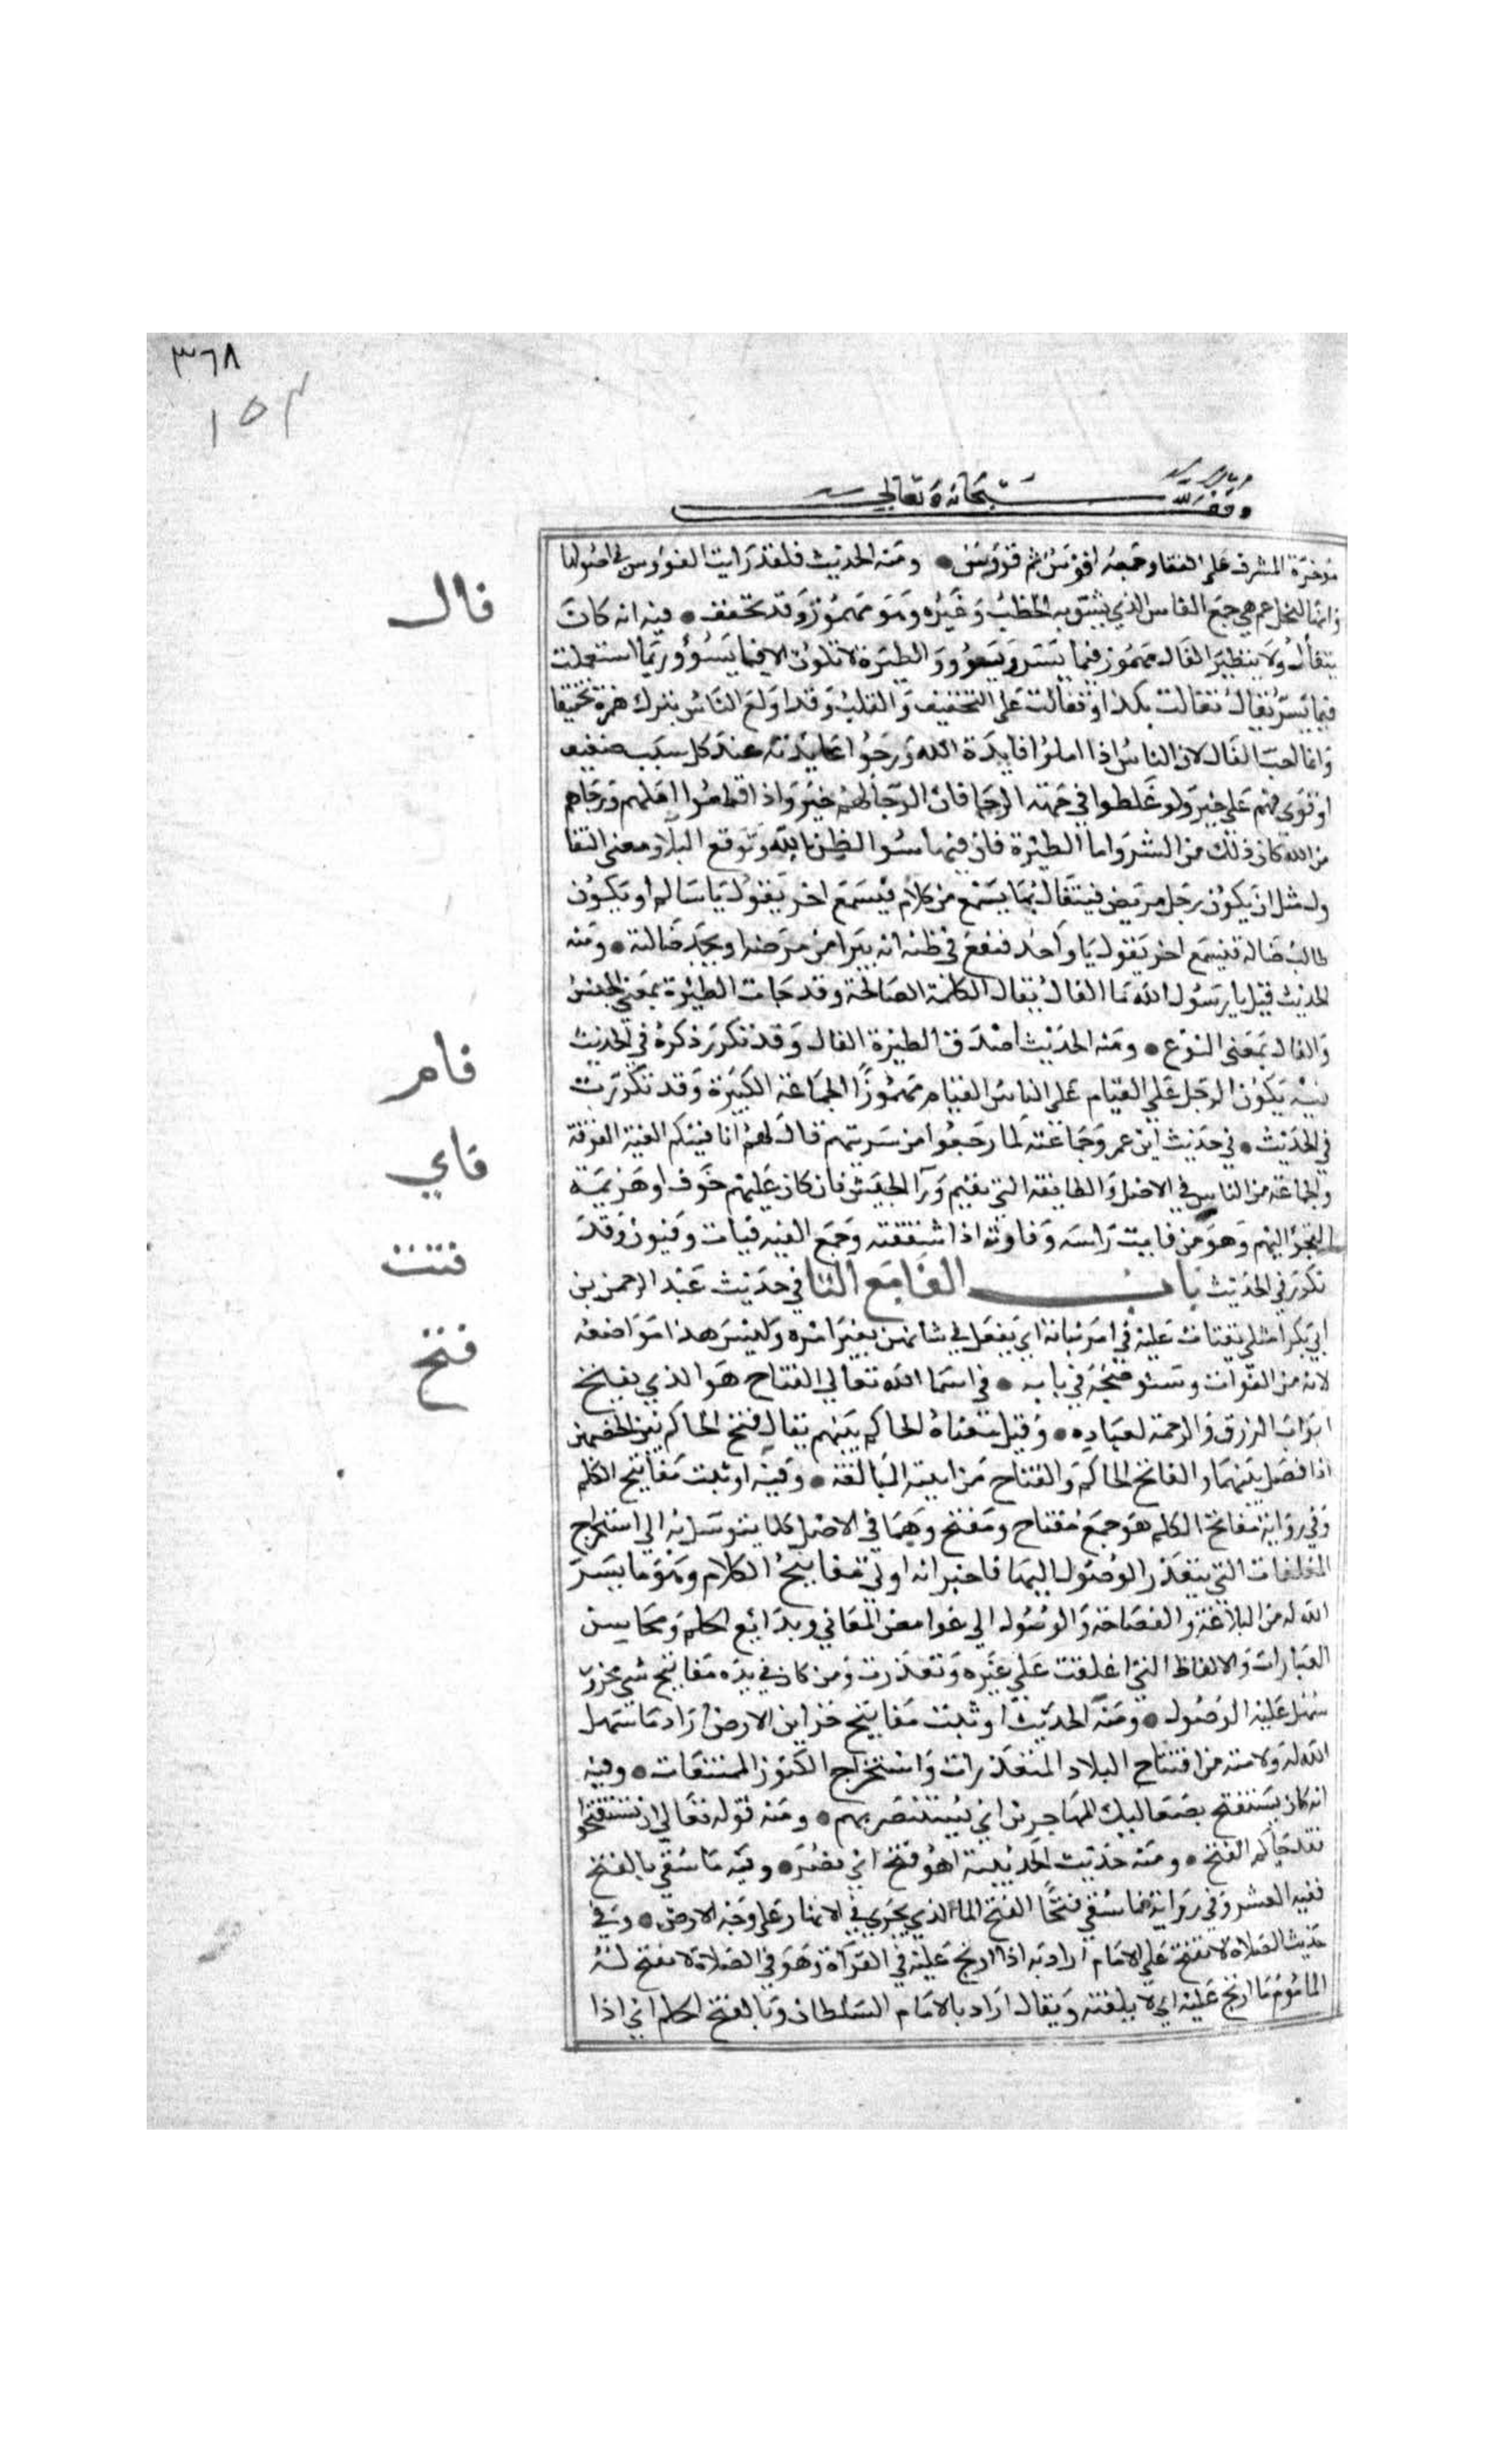 ٣٦٨
١٥٣
وقف لله سبحانه وتعالى
مؤخرة المشرف على القفا وجمعه افوس ثم فووس ● ومنه الحديث فلقد رايت الفووس في اصولها
وانها لنخل عم هي جمع الفاس الذي يشق به الحطب وغيره وهو مهموز وقد تخفف ● فيه انه كان
يتفأل ولا يتطير الفال مهموز فيما يسر ويسوو والطيرة لا تكون الا فيما يسوؤ وربما استعملت
فيما يسر يقال تفالت بكذا وتفألت على التخفيف والقلب وقد اولع الناس بترك همزه تخفيفا
وانما احب الفال لان الناس اذا املوا فايدة الله ورجوا عايدته عند كل سبب ضعيف
او قوي فهم على خير ولو غلطوا في جهة الرجا فان الرجا لهم خير واذا قطعوا املهم ورجاهم
من الله كان ذلك من الشر واما الطيرة فان فيها سوا الظن بالله وتوقع البلا ومعنى التفا
ول مثل ان يكون رجل مريض فيتفال بما يسمع من كلام فيسمع اخر يقول يا سالم او يكون
طالب ضالة فيسمع اخر يقول يا واجد فيقع في ظنه انه يبرا من مرضه او يجد ضالته ● ومنه
الحديث قيل يا رسول الله ما الفال فقال الكلمة الصالحة وقد جات الطيرة بمعنى الجنس
والفال بمعنى النوع ● ومنه الحديث اصدق الطيرة الفال وقد تكرر ذكره في الحديث
فيه يكون الرجل على الفيام على الناس الفيام مهموزا الجماعة الكبيرة وقد تكررت
في الحديث ● في حديث ابن عمر وجماعته لما رجعوا من سريتهم قال لهم انا فيتكم الفية الفرقة
والجماعة من الناس في الاصل والطايفة التي تقيم ورآ الجيش فان كان عليهم خوف او هزيمة
التجؤا اليهم وهو من فايت راسه وفاوته اذا شققته وجمع الفيه فيات وفيون وقد
تكرر في الحديث باب الفا مع التا في حديث عبد الرحمن بن
ابي بكر امثلي يفتات عليه في امر بناته اي يفعل في شانهن بغير امره وليس هذا موضعه
لانه من الفوات وسنوضحه في بابه ● في اسما الله تعالى الفتاح هو الذي يفتح
ابواب الرزق والرحمة لعباده ● وقيل معناه الحاكم بينهم يقال فتح الحاكم بين الخصمين
اذا فصل بينهما والفاتح الحاكم والفتاح من ابنية المبالغة ● وفيه اوتيت مفاتيح الكلم
وفي رواية مفاتح الكلم هو جمع مفتاح ومفتح وهما في الاصل كلما يتوسل به الى استخراج
المغلقات التي يتعذر الوصول اليها فاخبر انه اوتي مفاتيح الكلام وهو ما يسر
الله له من البلاغة والفصاحة والوصول الى غوامض المعاني وبدائع الحكم ومحاسن
العبارات والالفاظ التي اغلقت على غيره وتعذرت ومن كان في يده مفاتيح شي مخزون
سهل عليه الوصول ● ومنه الحديث اوتيت مفاتيح خزاين الارض اراد ما سهل
الله له ولامته من افتتاح البلاد المتعذرات واستخراج الكنوز الممتنعات ● وفيه
انه كان يستفتح بصعاليك المهاجرين اي يستنصر بهم ● ومنه قوله تعالى ان تستفتحوا
فقد جاكم الفتح ● ومنه حديث الحديبية اهو فتح اي نصر ● وفيه ما سقي بالفتح
ففيه العشر وفي رواية ما سقي فتحا الفتح الما الذي يجري في الانهار على وجه الارض ● وفي
حديث الصلاة لا يفتح على الامام اراد به اذا ارتج عليه في القرآة وهو في الصلاة لا يفتح له
الماموم ما ارتج عليه اي لا يلقنه ويقال اراد بالامام السلطان وبالفتح الحكم اي اذا
فال
فام
فاي
فتت
فتح